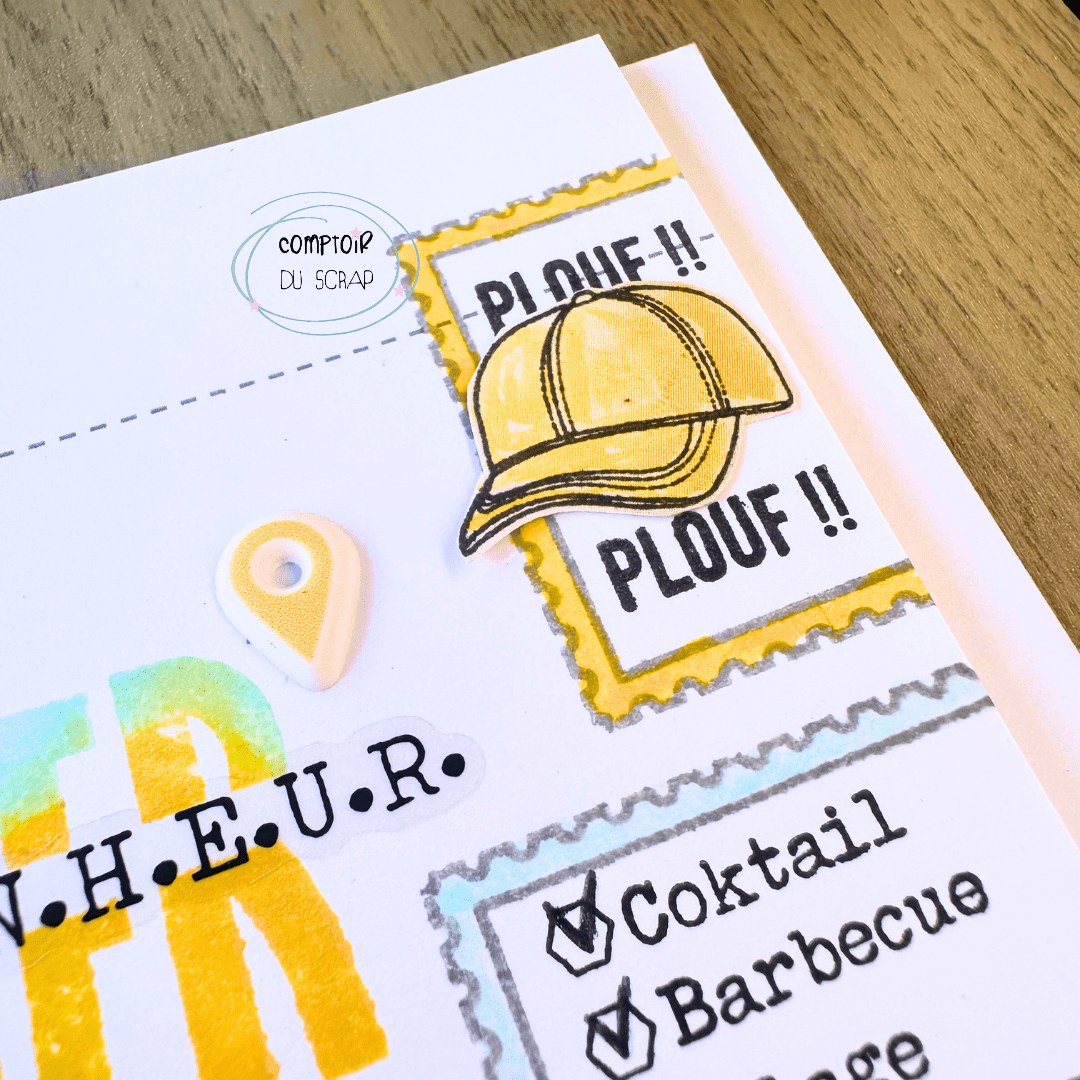 COMPTOIR
DU SCRAP
PLOUF !!
PLOUF !!
H.E.U.R.
Coktail
Barbecue